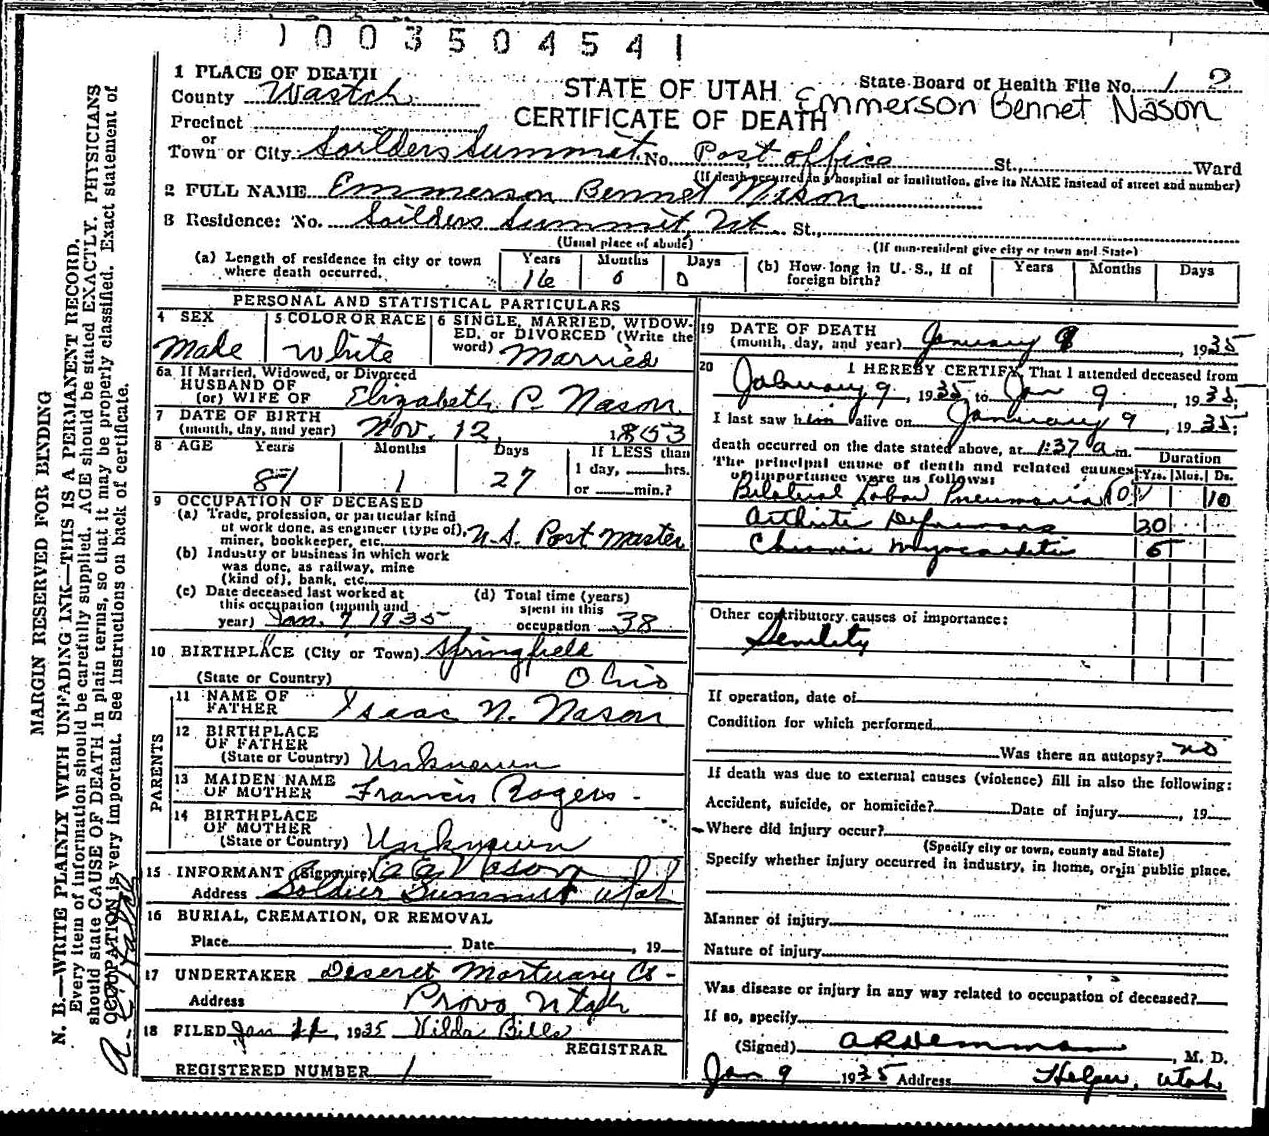 1003504541
1 PLACE OF DEATH
STATE OF UTAH
State Board of Health File No. 12
County Wastch
CERTIFICATE OF DEATH
Emmerson Bennet Nason
Precinct
or
Town or City. Soilders Summit. No. Post office St., Ward
(If death occurred in a hospital or institution, give its NAME instead of street and number)
2 FULL NAME Emmerson Bennet Nason
3 Residence: No. Soilders Summit, Ut. St.,
(Usual place of abode) (If non-resident give city or town and State)
(a) Length of residence in city or town where death occurred. Years 16 Months 0 Days 0
(b) How long in U. S., if of foreign birth? Years Months Days
PERSONAL AND STATISTICAL PARTICULARS
4 SEX Male
5 COLOR OR RACE White
6 SINGLE, MARRIED, WIDOWED, or DIVORCED (Write the word) Married
6a If Married, Widowed, or Divorced
HUSBAND OF
(or) WIFE OF Elizabeth P. Nason
7 DATE OF BIRTH
(month, day, and year) Nov. 12, 1853
8 AGE Years 81 Months 1 Days 27
If LESS than 1 day, hrs. or min.?
9 OCCUPATION OF DECEASED
(a) Trade, profession, or particular kind
of work done, as engineer (type of),
miner, bookkeeper, etc. U.S. Post Master
(b) Industry or business in which work
was done, as railway, mine
(kind of), bank, etc.
(c) Date deceased last worked at
this occupation (month and
year) Jan. 7, 1935
(d) Total time (years)
spent in this
occupation 38
10 BIRTHPLACE (City or Town) Springfield
(State or Country) Ohio
PARENTS
11 NAME OF
FATHER Isaac N. Nason
12 BIRTHPLACE
OF FATHER
(State or Country) Unknown
13 MAIDEN NAME
OF MOTHER Francis Rogers
14 BIRTHPLACE
OF MOTHER
(State or Country) Unknown
15 INFORMANT (Signature) Nason
Address Soldier Summit Utah
16 BURIAL, CREMATION, OR REMOVAL
Place Date , 19
17 UNDERTAKER Deseret Mortuary Co
Address Provo Utah
18 FILED Jan 11, 1935 Hilda Bills
REGISTRAR
REGISTERED NUMBER 1
19 DATE OF DEATH
(month, day, and year) January 9, 1935
20 I HEREBY CERTIFY, That I attended deceased from
January 9, 1935, to Jan 9, 1935;
I last saw him alive on January 9, 1935;
death occurred on the date stated above, at 1:37 a m.
The principal cause of death and related causes
of importance were as follows:
Duration
Yrs. Mos. Ds.
Bilateral Lobar Pneumonia 10
Arthritis Deformans 20
Chronic myocarditis 5
Other contributory causes of importance:
Senility
If operation, date of
Condition for which performed
Was there an autopsy? no
If death was due to external causes (violence) fill in also the following:
Accident, suicide, or homicide? Date of injury , 19
Where did injury occur?
(Specify city or town, county and State)
Specify whether injury occurred in industry, in home, or in public place.
Manner of injury
Nature of injury
Was disease or injury in any way related to occupation of deceased?
If so, specify
(Signed) , M. D.
Jan 9 1935 Address Helper, Utah
MARGIN RESERVED FOR BINDING
N. B.—WRITE PLAINLY WITH UNFADING INK—THIS IS A PERMANENT RECORD.
Every item of information should be carefully supplied. AGE should be stated EXACTLY. PHYSICIANS
should state CAUSE OF DEATH in plain terms, so that it may be properly classified. Exact statement of
OCCUPATION is very important. See instructions on back of certificate.